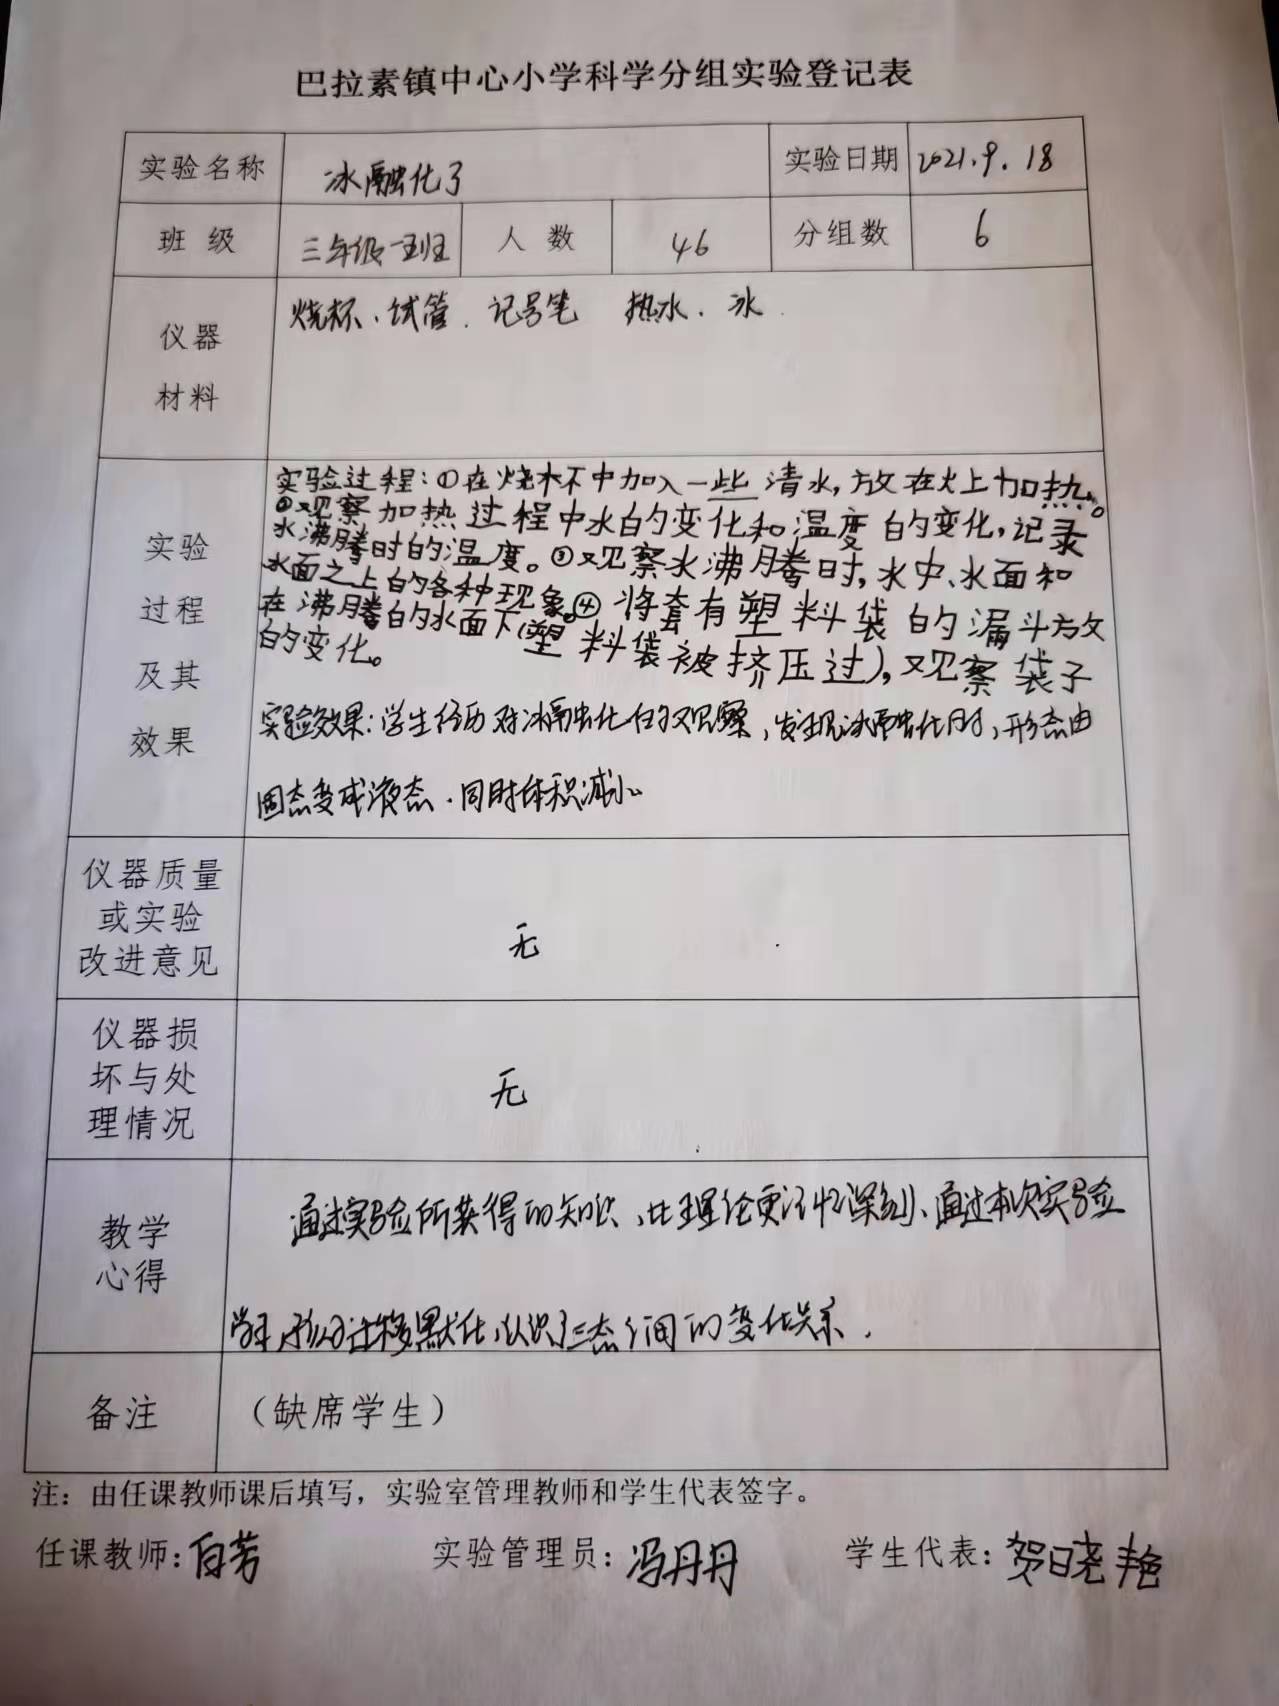 巴拉素镇中心小学科学分组实验登记表
实验名称 冰融化了 实验日期 2021.9.18
班级 三年级一班 人数 46 分组数 6
仪器
材料
烧杯、试管、记号笔 热水、冰
实验
过程
及其
效果
实验过程:①在烧杯中加入一些清水,放在火上加热。
②观察加热过程中水的变化和温度的变化,记录
水沸腾时的温度。③观察水沸腾时,水中、水面和
水面之上的各种现象。④将套有塑料袋的漏斗放
在沸腾的水面下(塑料袋被挤压过),观察袋子
的变化。
实验效果:学生经历对冰融化的观察,发现冰融化时,形态由
固态变成液态、同时体积减小。
仪器质量
或实验
改进意见
无
仪器损
坏与处
理情况
无
教学
心得
通过实验所获得的知识、比理论更记忆深刻、通过本次实验
学习,潜移默化,认识了三态之间的变化关系.
备注 (缺席学生)
注:由任课教师课后填写,实验室管理教师和学生代表签字。
任课教师:白芳 实验管理员:冯丹丹 学生代表:贺晓艳